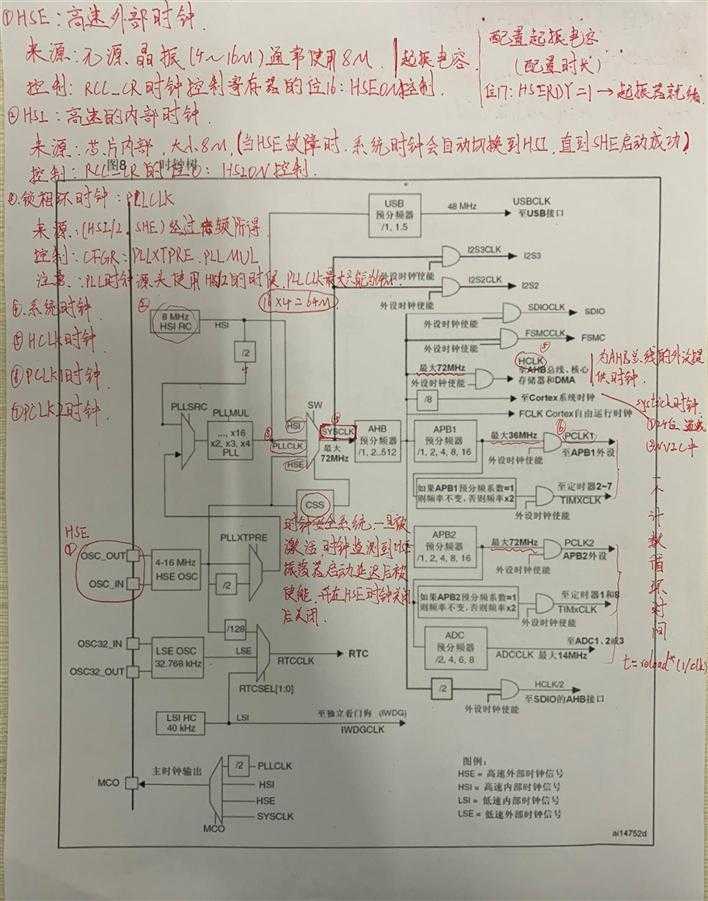 ①HSE:高速外部时钟.
来源:无源晶振(4~16M)通常使用8M
起振电容.
配置起振电容
(配置时长)
控制: RCC_CR时钟控制寄存器的位16:HSEON控制.
位17:HSERDY=1→起振器就绪.
②HSI:高速的内部时钟.
来源:芯片内部,大小8M,(当HSE故障时.系统时钟会自动切换到HSI,直到SHE启动成功)
控制: RCC_CR的位0:HSION控制.
图8 时钟树
③锁相环时钟:PLLCLK
来源:(HSI/2、SHE)经过倍频所得.
控制:CFGR:PLLXTPRE、PLLMUL
注意:PLL时钟源头使用HSI/2的时候,PLLCLK最大只能是64M.
16×4=64M
④系统时钟
⑤HCLK时钟
⑥PCLK1时钟
⑦PCLK2时钟
USB
预分频器
/1, 1.5
48 MHz
USBCLK
至USB接口
I2S3CLK
I2S3
外设时钟使能
I2S2CLK
I2S2
外设时钟使能
SDIOCLK
SDIO
外设时钟使能
FSMCCLK
FSMC
外设时钟使能
②
8 MHz
HSI RC
HSI
/2
HCLK
⑤
最大72MHz
至AHB总线、核心
存储器和DMA
外设时钟使能
为AHB总线的外设提
供时钟.
/8
至Cortex系统时钟
systick时钟.
FCLK Cortex自由运行时钟
PLLSRC
PLLMUL
..., x16
x2, x3, x4
PLL
SW
HSI
③
PLLCLK
HSE
④
SYSCLK
最大
72MHz
AHB
预分频器
/1, 2..512
APB1
预分频器
/1, 2, 4, 8, 16
最大36MHz
⑥
PCLK1
至APB1外设
外设时钟使能
如果APB1预分频系数=1
则频率不变,否则频率x2
至定时器2~7
TIMXCLK
外设时钟使能
CSS
时钟安全系统,一旦被
激活,时钟监测到HSE
振荡器启动延迟后被
使能,并在HSE时钟关闭
后关闭.
HSE
①
OSC_OUT
OSC_IN
4-16 MHz
HSE OSC
PLLXTPRE
/2
APB2
预分频器
/1, 2, 4, 8, 16
最大72MHz
PCLK2
APB2外设
外设时钟使能
如果APB2预分频系数=1
则频率不变,否则频率x2
至定时器1和8
TIMxCLK
外设时钟使能
一个计数循环时间
t=reload*(1/clk)
/128
OSC32_IN
OSC32_OUT
LSE OSC
32.768 kHz
LSE
RTCCLK
RTC
RTCSEL[1:0]
ADC
预分频器
/2, 4, 6, 8
至ADC1、2或3
ADCCLK 最大14MHz
/2
HCLK/2
至SDIO的AHB接口
外设时钟使能
LSI HC
40 kHz
LSI
至独立看门狗 (IWDG)
IWDGCLK
MCO
主时钟输出
/2
PLLCLK
HSI
HSE
SYSCLK
MCO
图例:
HSE = 高速外部时钟信号
HSI = 高速内部时钟信号
LSI = 低速内部时钟信号
LSE = 低速外部时钟信号
ai14752d